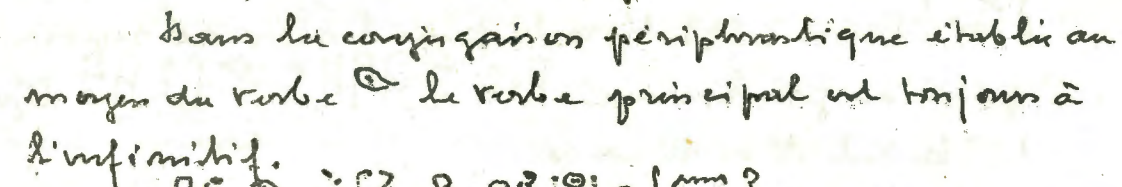 Dans la conjugaison périphrastique établie au
moyen du verbe 𓂋 le verbe principal est toujours à
l'infinitif.